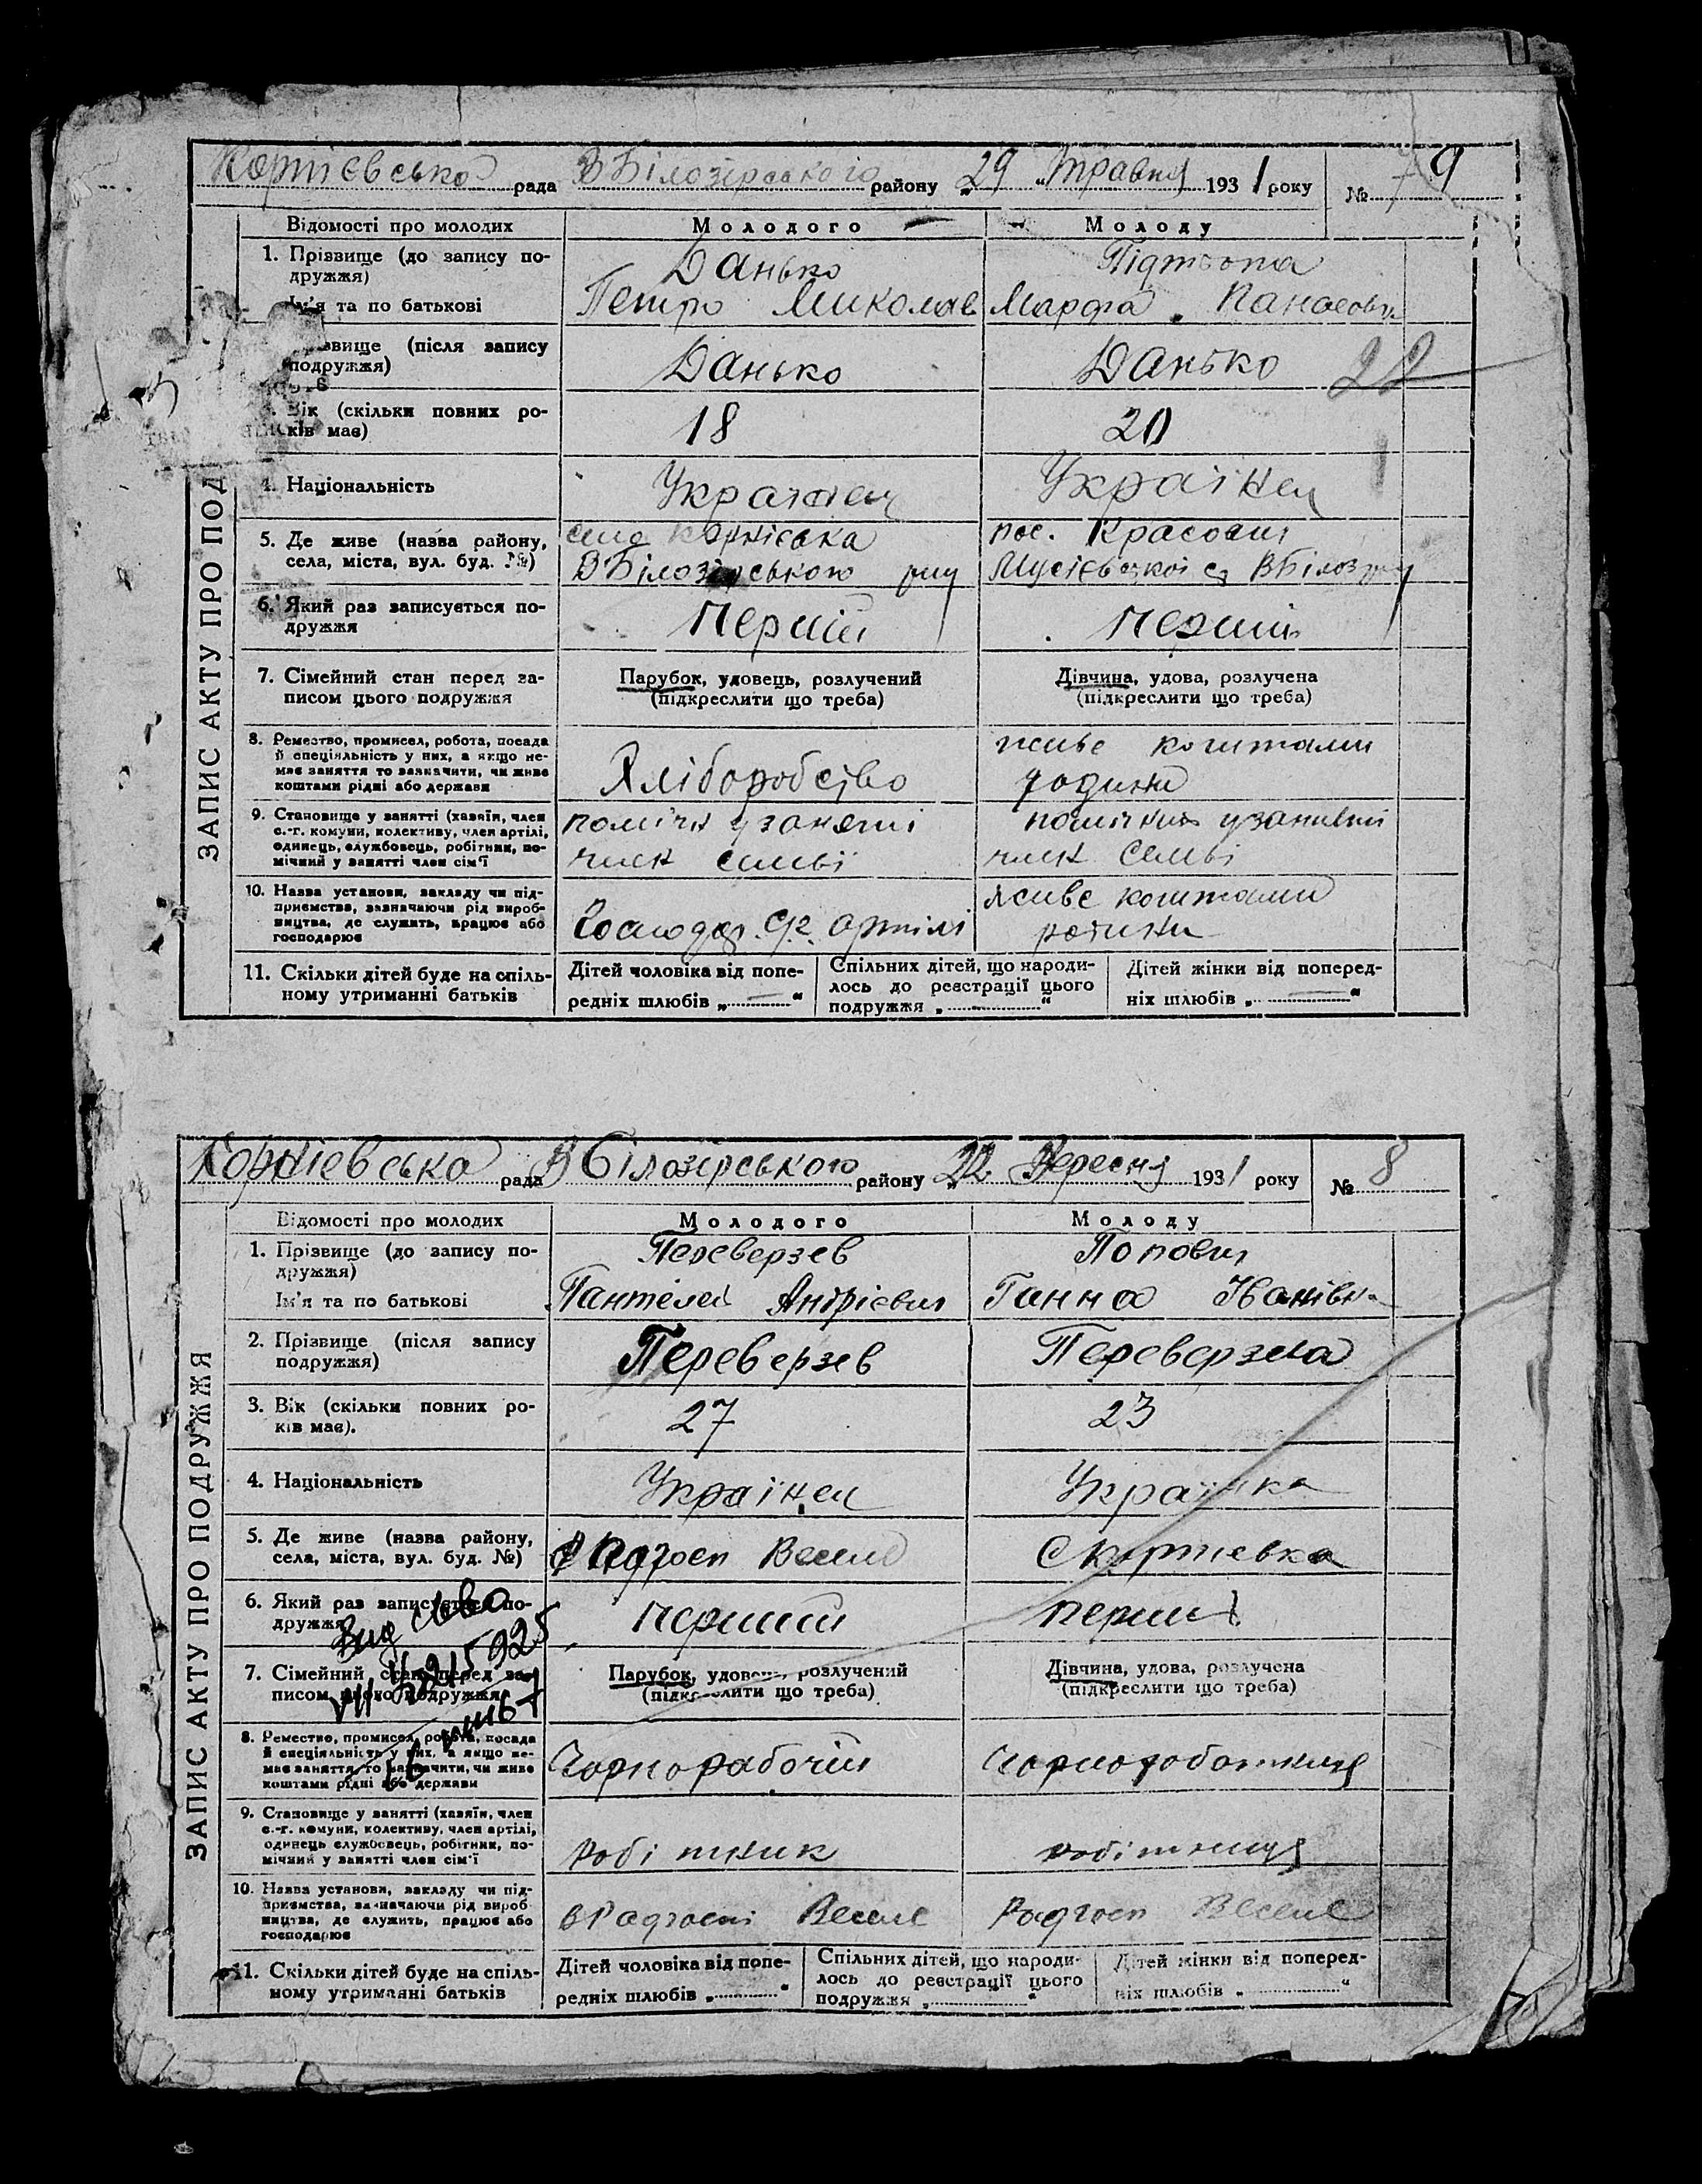 Корнієвсько рада ВБілозірського району „29 „травня 1931 року № 9
Відомості про молодих Молодого Молоду
1. Прізвище (до запису по-
дружжя) Данько
Ім'я та по батькові Петро Миколаев Марфа Панасовн
різвище (після запису
подружжя) Данько Данько 22
Вік (скільки повних ро-
ків має) 18 20
4. Національність Українец Українец
5. Де живе (назва району, село Корніевка пос. Красовит
села, міста, вул. буд. №) ВБілозірського рну ВБілоз рну
6. Який раз записується по-
дружжя Перший перший
7. Сімейний стан перед за- Парубок, удовець, розлучений Дівчина, удова, розлучена
писом цього подружжя (підкреслити що треба) (підкреслити що треба)
8. Ремество, промисел, робота, посада живе коштами
й спеціяльність у них, а якщо не-
має заняття то зазначити, чи живе Хліборобство родини
коштами рідні або держави
9. Становище у занятті (хазяїн, член помічн у заняті помічник у занятті
с.-г. комуни, колективу, член артілі,
одинець, службовець, робітник, по- член семьї член семьі
мічний у занятті член сім'ї
10. Назва установи, закладу чи під- живе коштами
приємства, зазначаючи рід вироб-
ництва, де служить, працює або Господар. С/г. артілі родини
господарює
11. Скільки дітей буде на спіль- Дітей чоловіка від попе- Спільних дітей, що народи- Дітей жінки від поперед-
ному утриманні батьків редніх шлюбів „ — “ лось до реєстрації цього ніх шлюбів „ — “
подружжя „ “
ЗАПИС АКТУ ПРО ПОД
Корнієвська рада ВБілозірського району „22 Вересня 1931 року № 8
Відомості про молодих Молодого Молоду
1. Прізвище (до запису по- Переверзев Попович
дружжя)
Ім'я та по батькові Пантелей Андрієвич Ганна Іванівн
2. Прізвище (після запису
подружжя) Переверзев Переверзева
3. Вік (скільки повних ро-
ків має). 27 23
4. Національність Українец Українка
5. Де живе (назва району,
села, міста, вул. буд. №) Радгосп Веселе С Корнієвка
6. Який раз записується по-
дружжя перший перший
7. Сімейний стан перед за- Парубок, удовець, розлучений Дівчина, удова, розлучена
писом цього подружжя (підкреслити що треба) (підкреслити що треба)
8. Ремество, промисел, робота, посада
й спеціяльність у них, а якщо не-
має заняття то зазначити, чи живе Чорнорабочій Чорноработниця
коштами рідні або держави
9. Становище у занятті (хазяїн, член
с.-г. комуни, колективу, член артілі,
одинець службовець, робітник, по- робітник робітниця
мічний у занятті член сім'ї
10. Назва установи, закладу чи під-
приємства, зазначаючи рід вироб-
ництва, де служить, працює або в Радгоспі Веселе Радгосп Веселе
господарює
11. Скільки дітей буде на спіль- Дітей чоловіка від попе- Спільних дітей, що народи- Дітей жінки від поперед-
ному утриманні батьків редніх шлюбів „ “ лось до реєстрації цього ніх шлюбів „ “
подружжя „ “
ЗАПИС АКТУ ПРО ПОДРУЖЖЯ